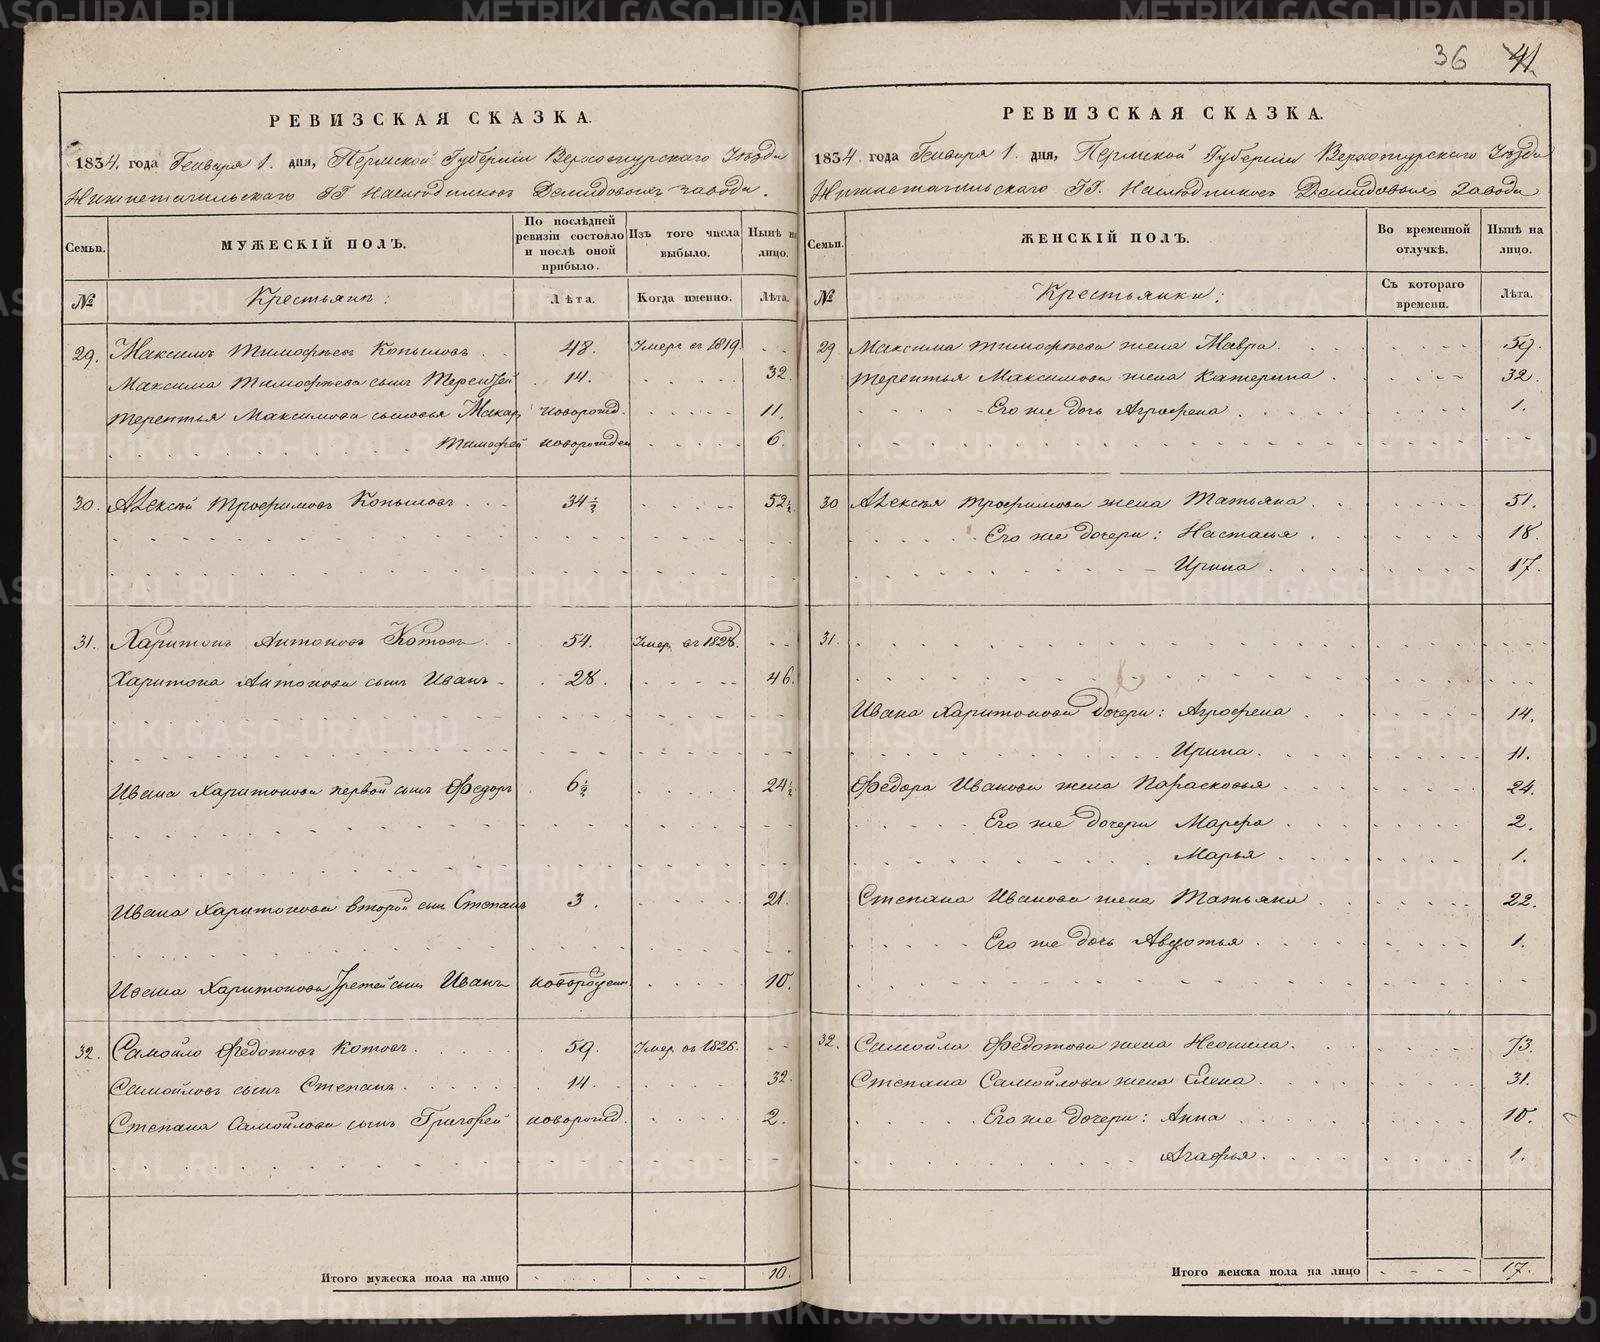 36 41.
РЕВИЗСКАЯ СКАЗКА.
1834. года Генваря 1. дня, Пермской Губерніи Верхотурскаго Уѣзда
Нижнетагильскаго ГГ. Наслѣдниковъ Демидовыхъ завода.
Семьи. МУЖЕСКІЙ ПОЛЪ. По послѣдней ревизіи состояло и послѣ оной прибыло. Изъ того числа выбыло. Нынѣ на лицо.
№ Крестьянъ: Лѣта. Когда именно. Лѣта.
29. Максимъ Тимофѣевъ Копыловъ 48. Умеръ въ 1819
Максима Тимофѣева сынъ Терентей 14. 32.
Терентья Максимова сыновья Макаръ новорожд. 11.
Тимофей новорожден 6.
30. Алексѣй Трофимовъ Копыловъ 34½ 52½
31. Харитонъ Антоновъ Котовъ 54. Умер. въ 1828.
Харитона Антонова сынъ Иванъ 28. 46.
Ивана Харитонова первой сынъ Федоръ 6½ 24½
Ивана Харитонова второй сынъ Степанъ 3. 21.
Ивана Харитонова Третей сынъ Иванъ новорожден. 10.
32. Самойло Федотовъ Котовъ 59. Умер. въ 1826.
Самойловъ сынъ Степанъ 14. 32.
Степана Самойлова сынъ Григорей новорожд. 2.
Итого мужеска пола на лицо 10.
РЕВИЗСКАЯ СКАЗКА.
1834. года Генваря 1. дня, Пермской Губерніи Верхотурскаго Уѣзда
Нижнетагильскаго ГГ. Наслѣдниковъ Демидовыхъ Завода
Семьи. ЖЕНСКІЙ ПОЛЪ. Во временной отлучкѣ. Нынѣ на лицо.
№ Крестьянки: Съ котораго времени. Лѣта.
29 Максима Тимофѣева жена Мавра. 59.
Терентья Максимова жена Катерина 32.
Его же дочь Агрофена 1.
30 Алексѣя Трофимова жена Татьяна 51.
Его же дочери: Настасья 18.
Ирина 17.
31.
Ивана Харитонова дочери: Агрофена 14.
Ирина. 11.
Федора Иванова жена Парасковья 24.
Его же дочери Марфа 2.
Марья 1.
Степана Иванова жена Татьяна 22.
Его же дочь Авдотья 1.
32. Самойла Федотова жена Неонила. 73.
Степана Самойлова жена Елена. 31.
Его же дочери: Анна 10.
Агафья. 1.
Итого женска пола на лицо 17.
METRIKI.GASO-URAL.RU